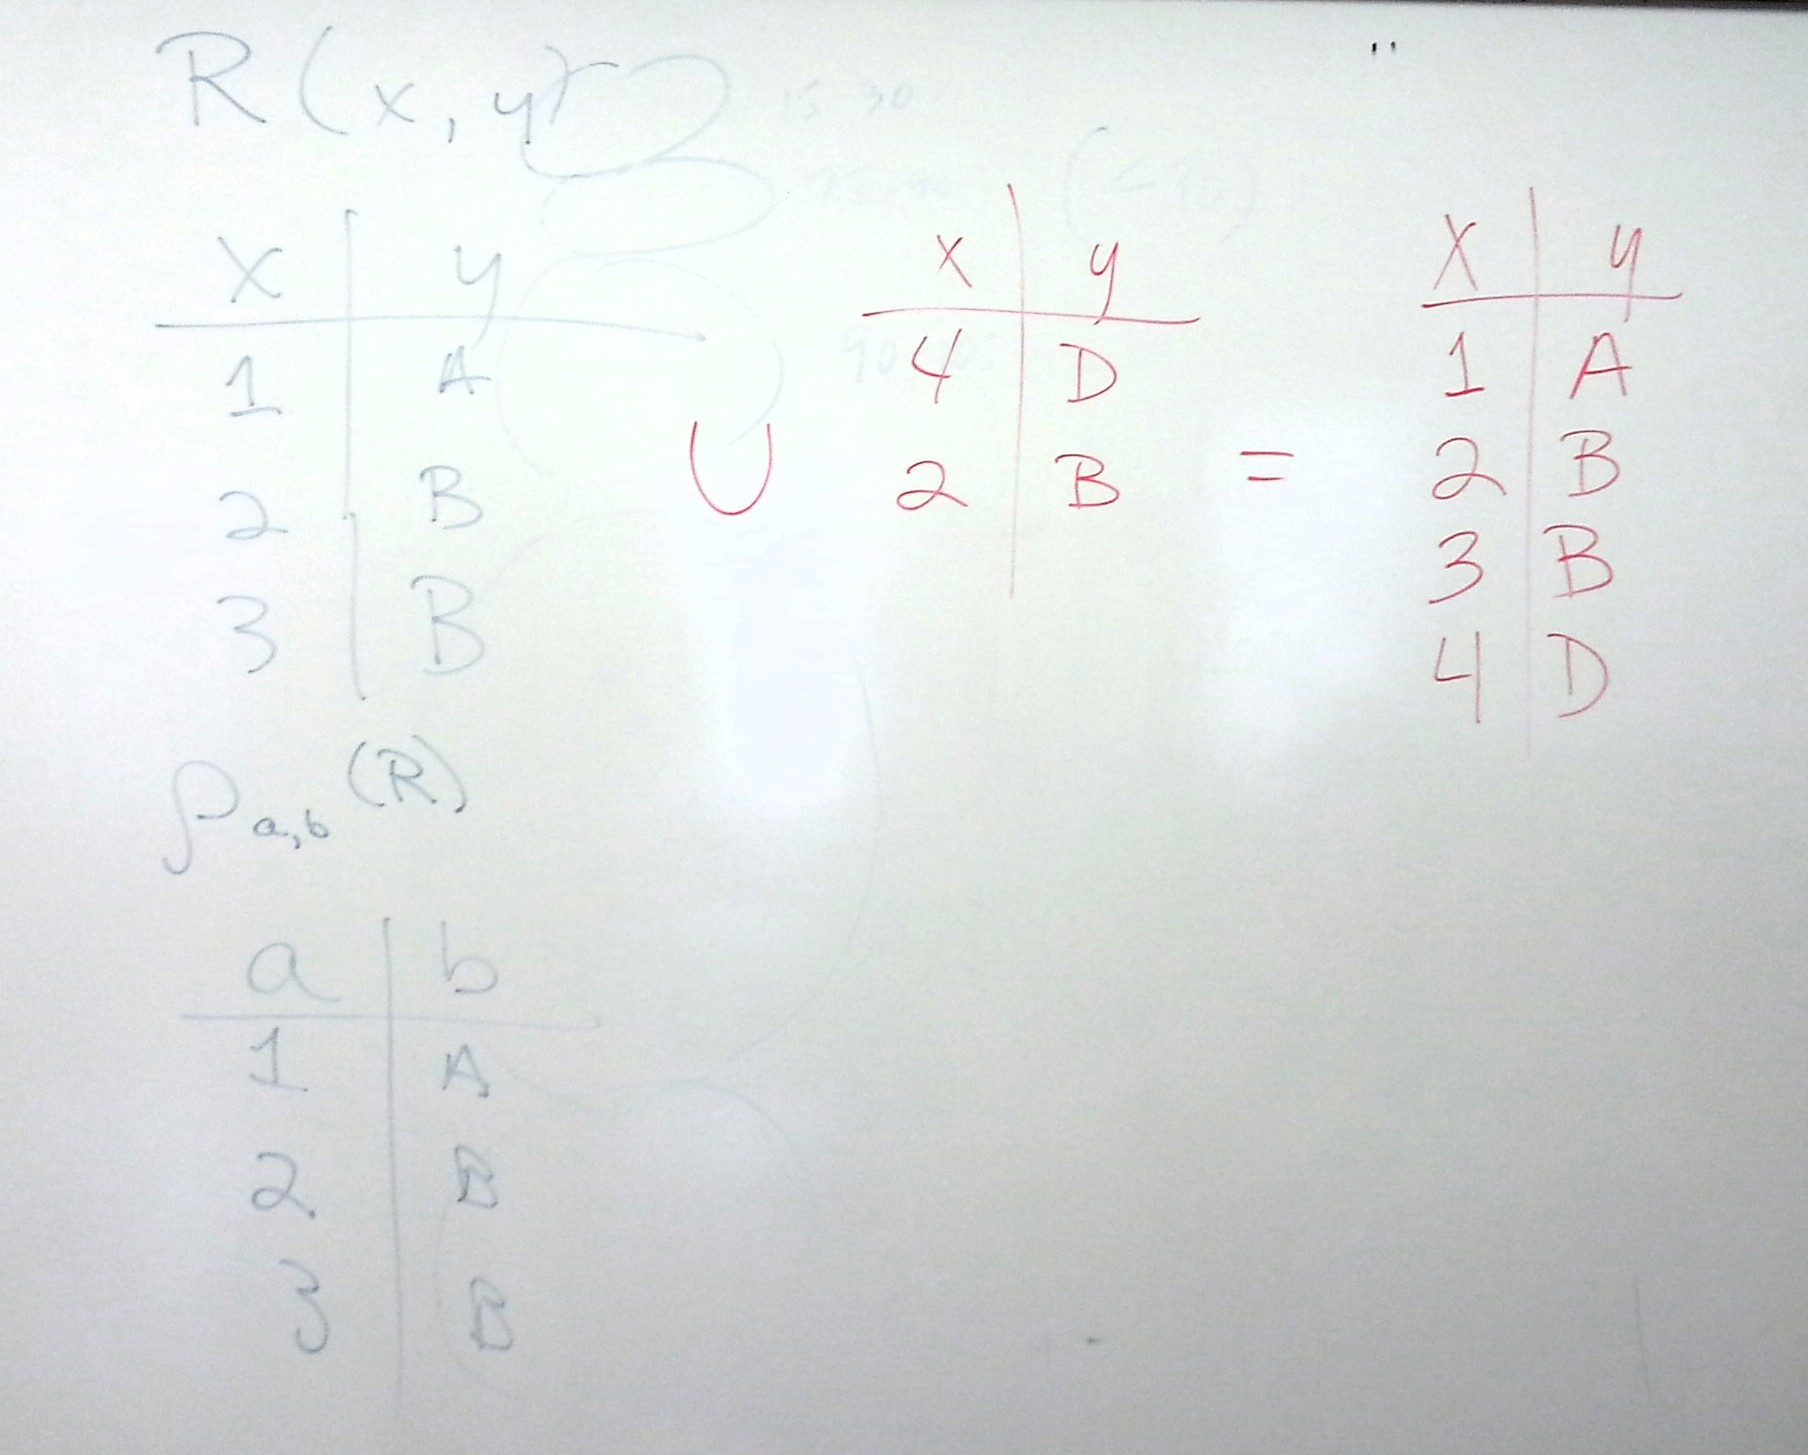 R(x, y)
x y
1 A
2 B
3 B
∪
x y
4 D
2 B
=
x y
1 A
2 B
3 B
4 D
ρa,b (R)
a b
1 A
2 B
3 B
15-30